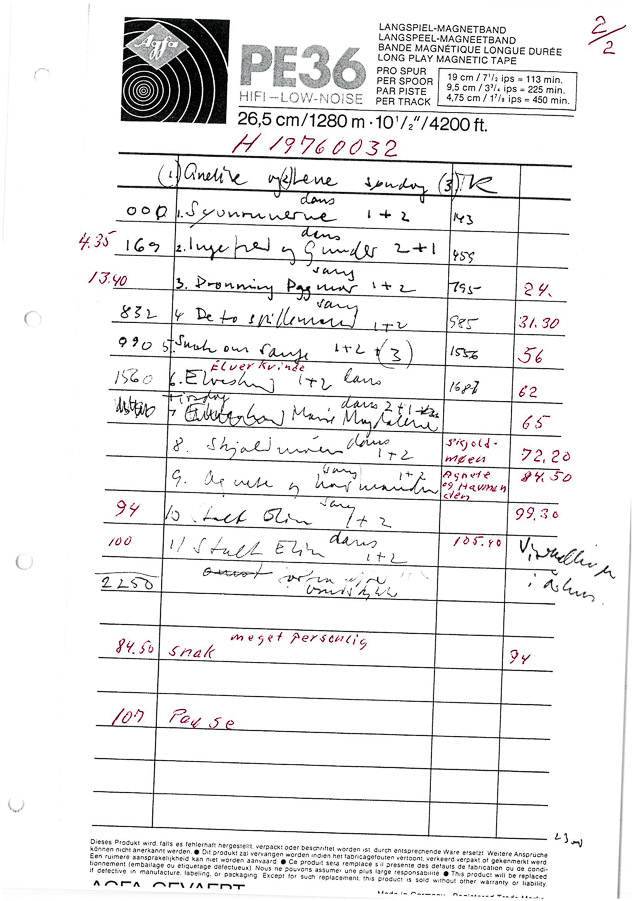 2/2
Agfa
PE36
HIFI–LOW–NOISE
LANGSPIEL-MAGNETBAND
LANGSPEEL-MAGNEETBAND
BANDE MAGNÉTIQUE LONGUE DURÉE
LONG PLAY MAGNETIC TAPE
PRO SPUR
PER SPOOR
PAR PISTE
PER TRACK
19 cm / 7 1/2 ips = 113 min.
9,5 cm / 3 3/4 ips = 225 min.
4,75 cm / 1 7/8 ips = 450 min.
26,5 cm/1280 m · 10 1/2"/4200 ft.
H 19760032
(1) og (2) Lene søndag (3)
000 1. dans 1+2 143
4.35 169 2. Ingefred og Gunder dans 2+1 459
13.40 3. Dronning Dagmar sang 1+2 795 24.
832 4 De to spillemænd sang 1+2 985 31.30
990 5. Snak om sange 1+2 + (3) 1556 56
1560 6. Elverkvinde dans 1+2 62
7. Maria Magdalene dans 2+1 65
8. Skjoldmøen dans 1+2 skjold-
møen 72.20
9. Agnete og havmanden sang 1+2 Agnete
og Havman
den 84.50
94 10 Stalt Elin sang 1+2 99.30
100 11 Stalt Elin dans 1+2 105.40
2250
meget personlig
84.50 snak 94
107 Pause
Dieses Produkt wird, falls es fehlerhaft hergestellt, verpackt oder beschriftet worden ist, durch entsprechende Ware ersetzt. Weitere Ansprüche
können nicht anerkannt werden. ● Dit produkt zal vervangen worden indien het fabricagefouten vertoont, verkeerd verpakt of gekenmerkt werd.
Een ruimere aansprakelijkheid kan niet worden aanvaard. ● Ce produit sera remplacé s'il présente des défauts de fabrication ou de condi-
tionnement (emballage ou étiquetage défectueux). Nous ne pouvons assumer une plus large responsabilité. ● This product will be replaced
if defective in manufacture, labeling, or packaging. Except for such replacement, this product is sold without other warranty or liability.
AGFA-GEVAERT
Made in Germany